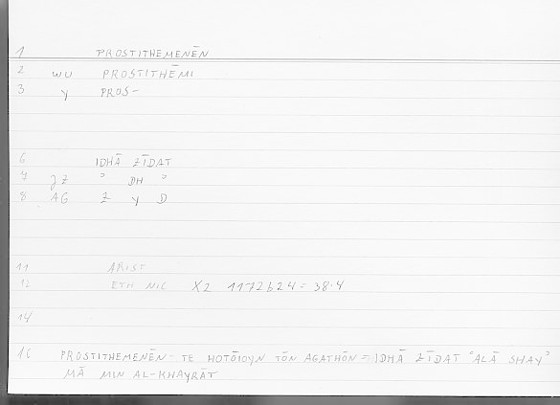 1 PROSTITHEMENĒN
2 WU PROSTITHĒMI
3 Y PROS-
6 IDHĀ ZĪDAT
7 JZ " DH "
8 AG Z Y D
11 ARIST
12 ETH NIC X2 1172b24 = 38.4
14
16 PROSTITHEMENĒN - TE HOTŌIOYN TŌN AGATHŌN = IDHĀ ZĪDAT "ALĀ SHAY"
MĀ MIN AL-KHAYRĀT